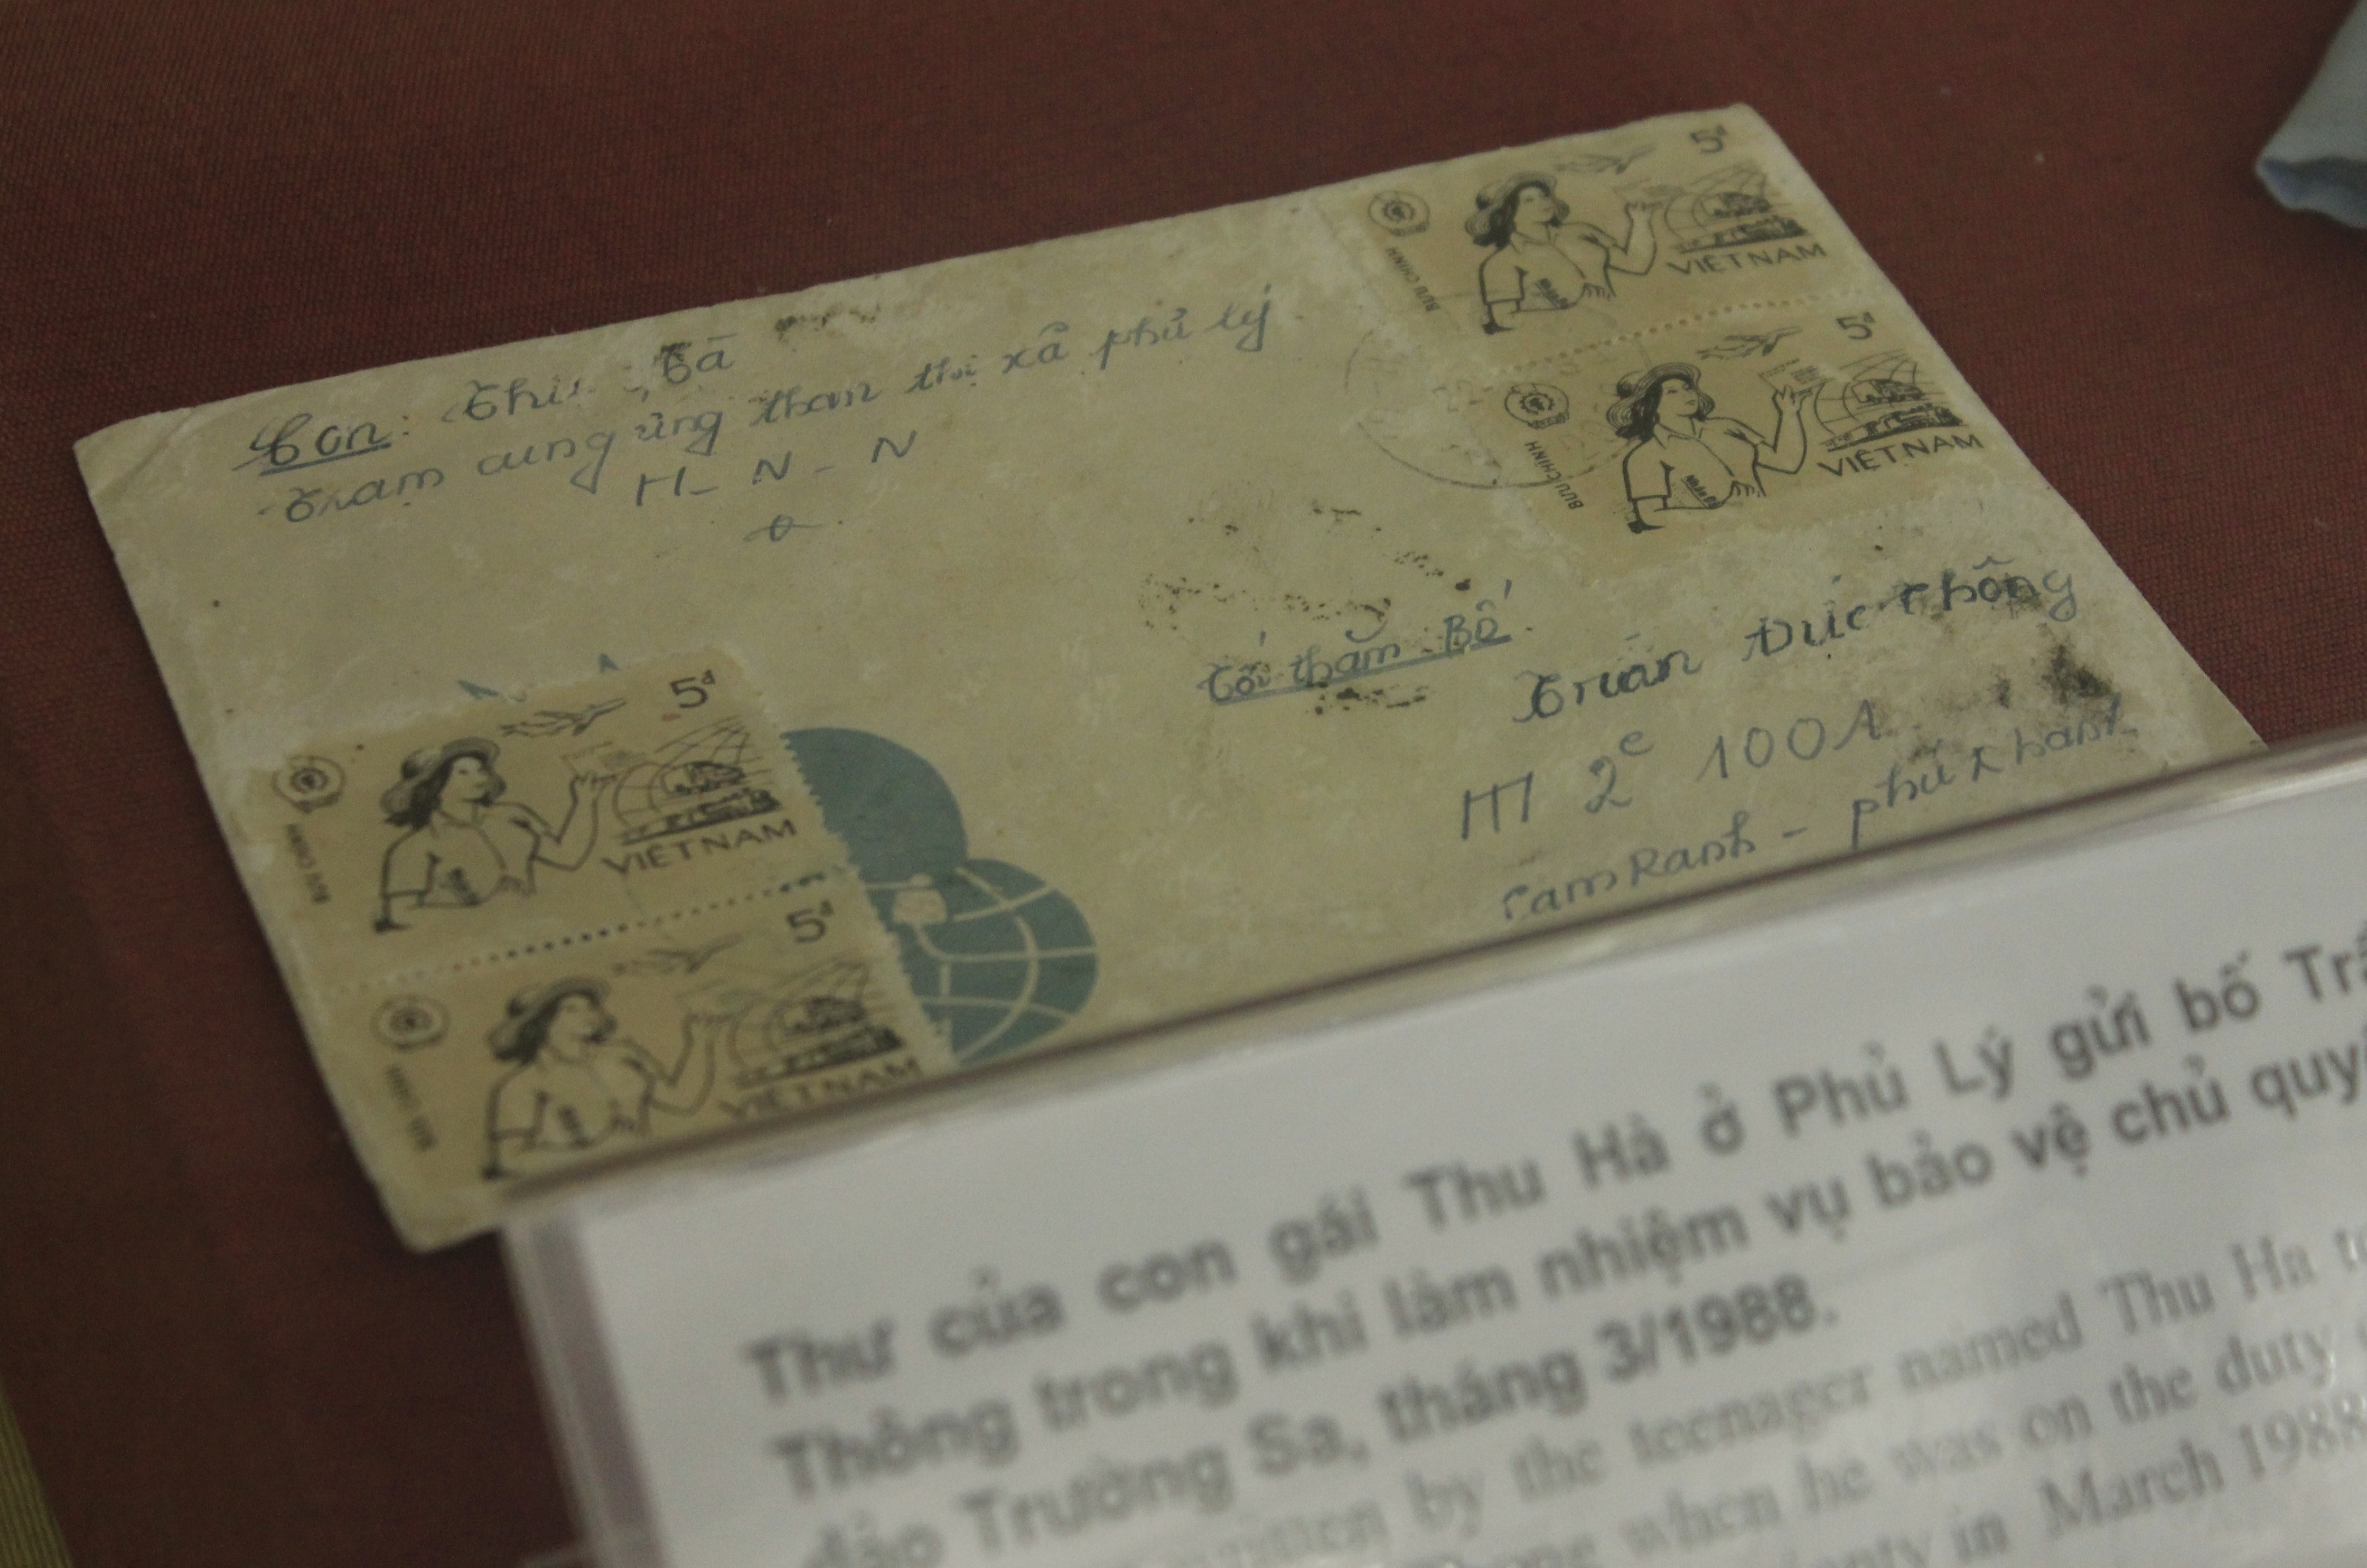 Con: Thu Hà
Trạm cung ứng than thị xã phủ lý
H - N - N
5đ
BƯU CHÍNH
VIỆT NAM
5đ
BƯU CHÍNH
VIỆT NAM
Tới thăm Bố
Trần Đức Thông
HT 2c 1001
Cam Ranh - phú khánh
5đ
BƯU CHÍNH
VIỆT NAM
5đ
BƯU CHÍNH
VIỆT NAM
Thư của con gái Thu Hà ở Phủ Lý gửi bố
Thông trong khi làm nhiệm vụ bảo vệ chủ
đảo Trường Sa, tháng 3/1988.
written by the teenager named Thu Ha
when he was on the duty
in March 1988